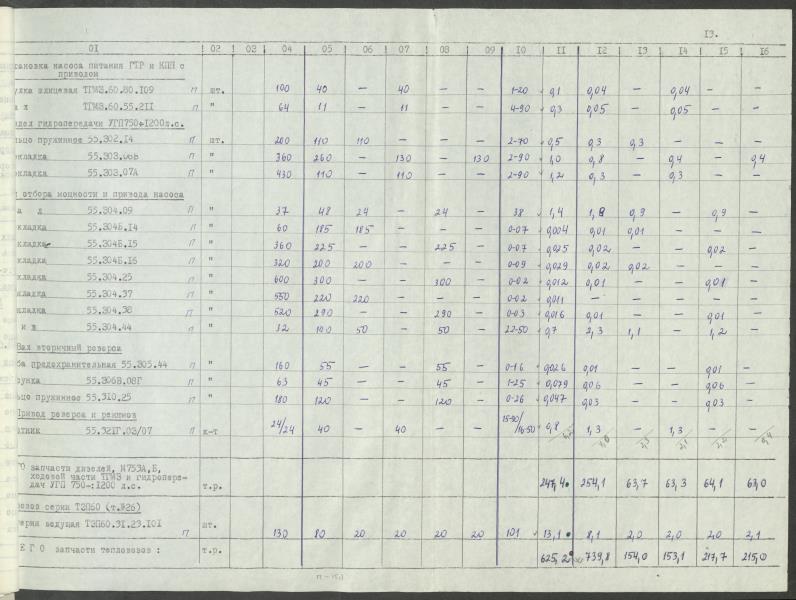 13.
01 02 03 04 05 06 07 08 09 10 11 12 13 14 15 16
становка насоса питания ГТР и КПП с
приводом
улка шлицевая ТГМ3.60.80.109 П шт. 100 40 — 40 — — 1-20 0,1 0,04 — 0,04 — —
а л ТГМ3.60.55.211 П " 64 11 — 11 — — 4-90 0,3 0,05 — 0,05 — —
дел гидропередачи УГП750÷1200л.с.
льцо пружинное 55.302.14 П шт. 200 110 110 — — — 2-70 0,5 0,3 0,3 — — —
окладка 55.303.06В П " 360 260 — 130 — 130 2-90 1,0 0,8 — 0,4 — 0,4
окладка 55.303.07А П " 430 110 — 110 — — 2-90 1,2 0,3 — 0,3 — —
отбора мощности и привода насоса
а л 55.304.09 П " 37 48 24 — 24 — 38 1,4 1,8 0,9 — 0,9 —
кладка 55.304Б.14 П " 60 185 185 — — — 0-07 0,004 0,01 0,01 — — —
кладка 55.304Б.15 П " 360 225 — — 225 — 0-07 0,025 0,02 — — 0,02 —
кладка 55.304Б.16 П " 320 200 200 — — — 0-09 0,029 0,02 0,02 — — —
кладка 55.304.25 П " 600 300 — — 300 — 0-02 0,012 0,01 — — 0,01 —
кладка 55.304.37 П " 550 220 220 — — — 0-02 0,011 — — — — —
кладка 55.304.38 П " 520 290 — — 290 — 0-03 0,016 0,01 — — 0,01 —
55.304.44 П " 32 100 50 — 50 — 22-50 0,7 2,3 1,1 — 1,2 —
Вал вторичный реверса
ба предохранительная 55.305.44 " 160 55 — — 55 — 0-16 0,026 0,01 — — 0,01 —
унка 55.306В.08Г П " 63 45 — — 45 — 1-25 0,079 0,06 — — 0,06 —
льцо пружинное 55.310.25 П " 180 120 — — 120 — 0-26 0,047 0,03 — — 0,03 —
Привод реверса и режимов
атник 55.321Г.03/07 П к-т 24/24 40 — 40 — — 0,8 1,3 — 1,3 — —
О запчасти дизелей, М753А,Б,
ходовой части ТГМ3 и гидропере-
дач УГП 750-:1200 л.с. т.р. 247,4 254,1 63,7 63,3 64,1 63,0
овоз серии ТЭП60 (т.№26)
ерня ведущая ТЭП60.31.23.101 П шт. 130 80 20 20 20 20 101 13,1 8,1 2,0 2,0 2,0 2,1
Е Г О запчасти тепловозов : т.р. 625,2 739,8 154,0 153,1 217,7 215,0